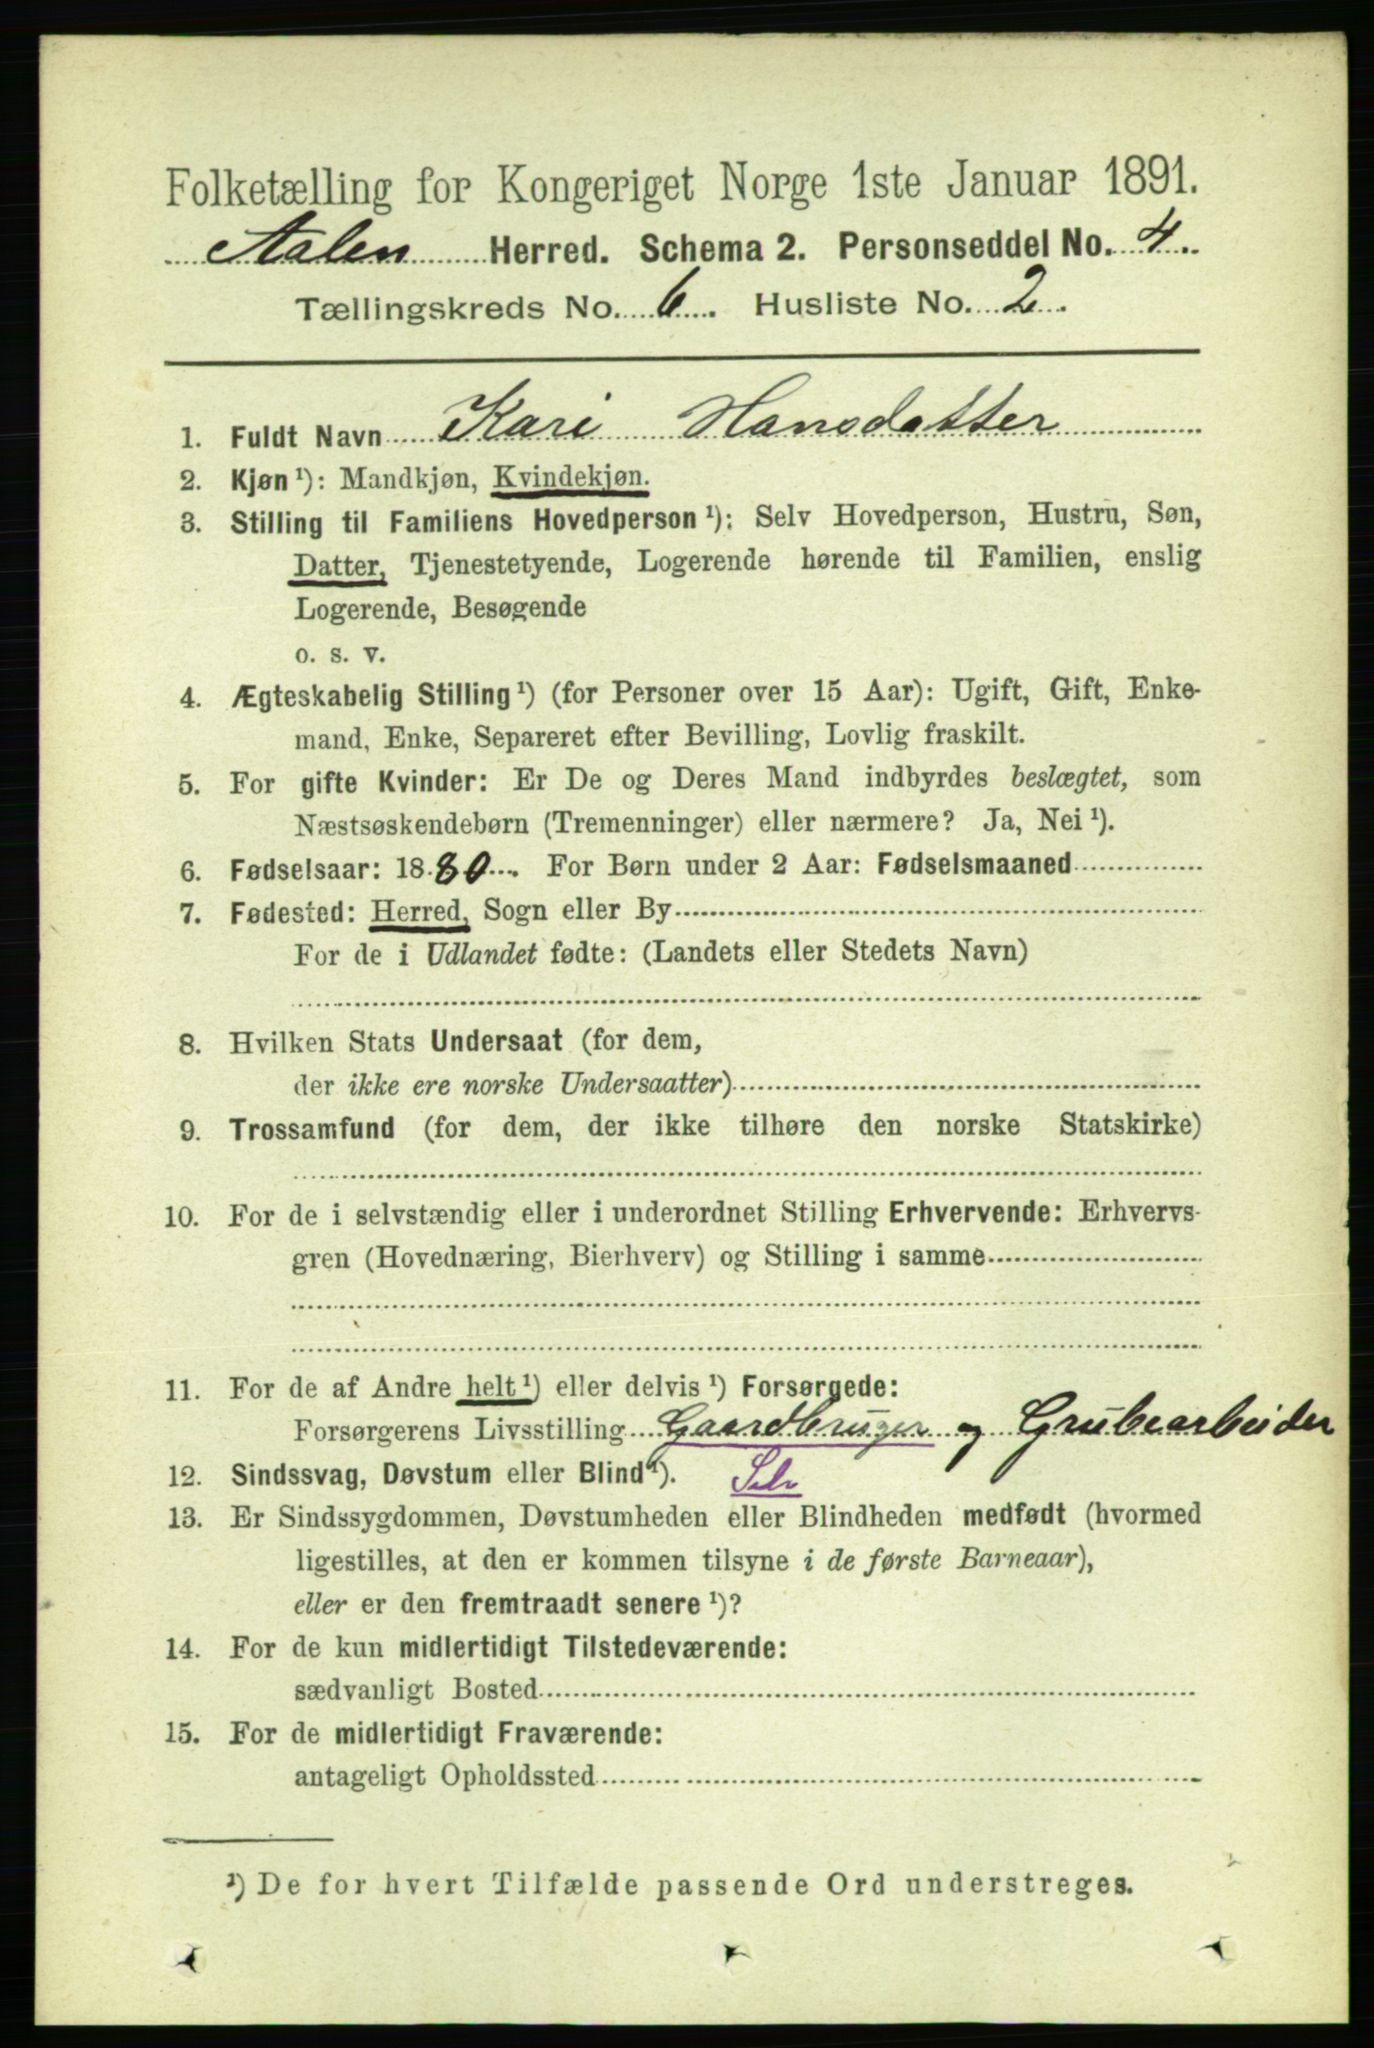 Folketælling for Kongeriget Norge 1ste Januar 1891.
Aalen Herred. Schema 2. Personseddel No. 4.
Tællingskreds No. 6. Husliste No. 2.
1. Fuldt Navn Kari Hansdatter
2. Kjøn ¹): Mandkjøn, Kvindekjøn.
3. Stilling til Familiens Hovedperson ¹): Selv Hovedperson, Hustru, Søn,
Datter, Tjenestetyende, Logerende hørende til Familien, enslig
Logerende, Besøgende
o. s. v.
4. Ægteskabelig Stilling ¹) (for Personer over 15 Aar): Ugift, Gift, Enke-
mand, Enke, Separeret efter Bevilling, Lovlig fraskilt.
5. For gifte Kvinder: Er De og Deres Mand indbyrdes beslægtet, som
Næstsøskendebørn (Tremenninger) eller nærmere? Ja, Nei ¹).
6. Fødselsaar: 1880. For Børn under 2 Aar: Fødselsmaaned
7. Fødested: Herred, Sogn eller By
For de i Udlandet fødte: (Landets eller Stedets Navn)
8. Hvilken Stats Undersaat (for dem,
der ikke ere norske Undersaatter)
9. Trossamfund (for dem, der ikke tilhøre den norske Statskirke)
10. For de i selvstændig eller i underordnet Stilling Erhvervende: Erhvervs-
gren (Hovednæring, Bierhverv) og Stilling i samme
11. For de af Andre helt ¹) eller delvis ¹) Forsørgede:
Forsørgerens Livsstilling Gaardbruger og Grubearbeider
12. Sindssvag, Døvstum eller Blind ¹). Selv
13. Er Sindssygdommen, Døvstumheden eller Blindheden medfødt (hvormed
ligestilles, at den er kommen tilsyne i de første Barneaar),
eller er den fremtraadt senere ¹)?
14. For de kun midlertidigt Tilstedeværende:
sædvanligt Bosted
15. For de midlertidigt Fraværende:
antageligt Opholdssted
¹) De for hvert Tilfælde passende Ord understreges.